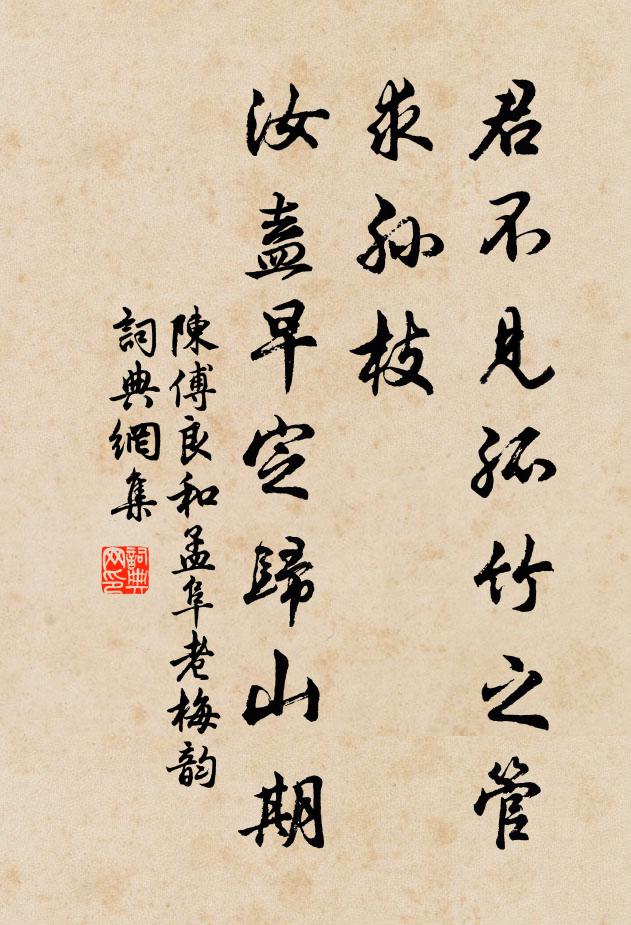 君不見孤竹之管
求孫枝
汝盍早定歸山期
陳傅良和孟阜老梅韵
詞典網集
詞典网印